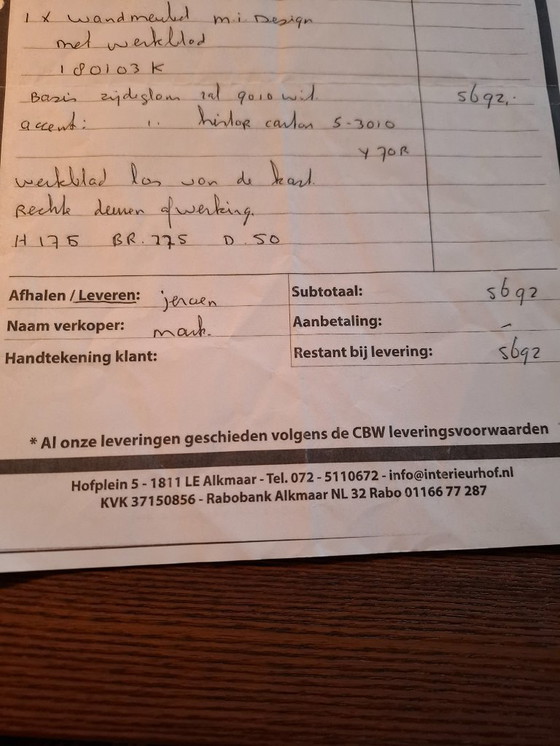 1 x wandmeubel mi Design
met werkblad
180103 K
Basis zijdeglans ral 9010 wit. 5692,-
accent: ,, histor carton S-3010
Y70R
werkblad los van de kast.
Rechte deuren afwerking.
H 175 BR. 275 D. 50
Afhalen / Leveren: jeroen Subtotaal: 5692
Naam verkoper: mark. Aanbetaling: -
Handtekening klant: Restant bij levering: 5692
* Al onze leveringen geschieden volgens de CBW leveringsvoorwaarden
Hofplein 5 - 1811 LE Alkmaar - Tel. 072 - 5110672 - info@interieurhof.nl
KVK 37150856 - Rabobank Alkmaar NL 32 Rabo 01166 77 287